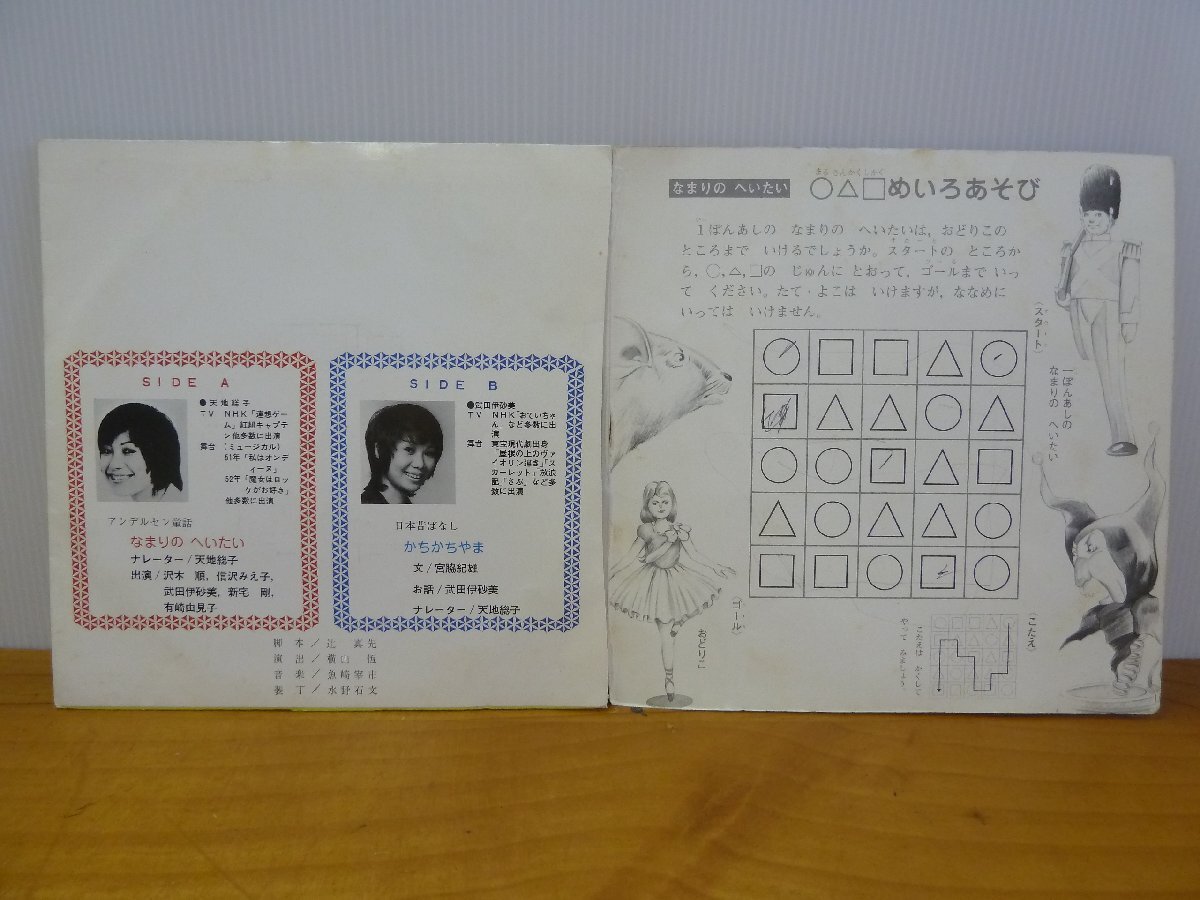 SIDE A
●天地総子
TV NHK「連想ゲー
ム」紅組キャプテ
ン他多数に出演
舞台（ミュージカル）
51年「私はオンデ
ィーヌ」
52年「魔女はロッ
ケがお好き」
他多数に出演
アンデルセン童話
なまりの へいたい
ナレーター/天地総子
出演/沢木 順，信沢みえ子，
武田伊砂美，新宅 剛，
有崎由見子
SIDE B
●武田伊砂美
TV NHK「おていちゃ
ん」など多数に出
演
舞台 東宝現代劇出身
「屋根の上のヴァ
イオリン弾き」「ス
カーレット」「放浪
記」「さぶ」など多
数に出演
日本昔ばなし
かちかちやま
文/宮脇紀雄
お話/武田伊砂美
ナレーター/天地総子
脚本/辻 真先
演出/横山 恆
音楽/魚崎宰市
装丁/水野石文
なまりの へいたい
まる さんかく しかく
○△□めいろあそび
1ぽんあしの なまりの へいたいは，おどりこの
ところまで いけるでしょうか。スタートの ところか
ら，○，△，□の じゅんに とおって，ゴールまで いっ
て ください。たて・よこは いけますが，ななめに
いっては いけません。
（スタート）
一ぽんあしの
なまりの へいたい
（ゴール）
おどりこ
（こたえ）
こたえは かくして
やって みましょう